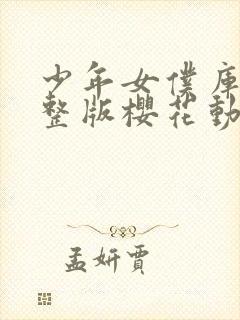 少年女僕庫
整版櫻花動
孟妍賈